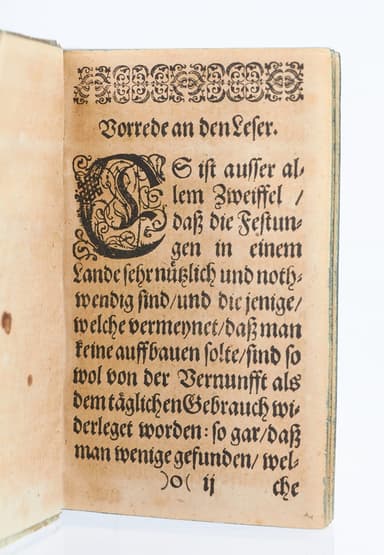 Vorrede an den Leser.
ES ist ausser al-
lem Zweiffel /
daß die Festun-
gen in einem
Lande sehr nützlich und noth-
wendig sind/und die jenige/
welche vermeynet/daß man
keine auffbauen solte/sind so
wol von der Vernunfft als
dem täglichen Gebrauch wi-
derleget worden: so gar/daß
man wenige gefunden/wel-
)o( ij che